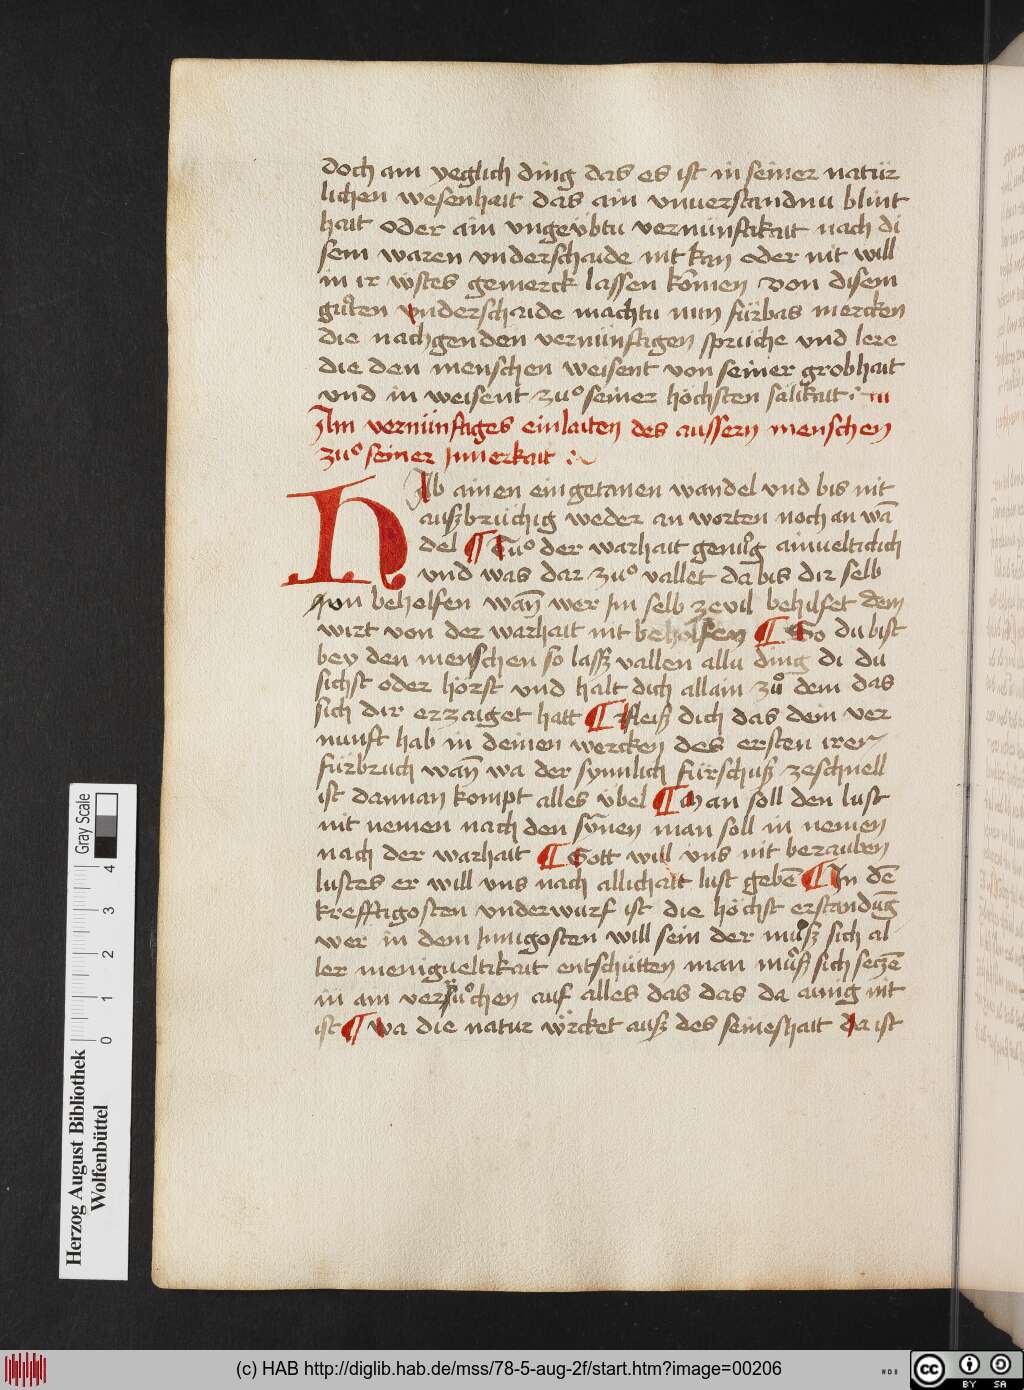 doch am yeglich ding das es ist in seiner natúr
lichen wesenhait das ain vnuerstandnú blint
hait oder ain vngeu̇btu vernúnftikait nach di
sem waren vnderschaide nit kan oder nit will
in ir wͤstes gemerck lassen komen von disem
guͦten vnderschaide machtu nun fúrbas mercken
die nachgenden vernúnftigen sprúche vnd lere
die den menschen weisent von seiner grobhait
vnd in weisent zuͦ seiner höchsten sälikait
Ain vernúnftiges einlaiten des aussern menschen
zuͦ seiner Innerkait
Hab ainen eingetanen wandel vnd bis nit
außbrúchig weder an worten noch an wā
del ¶ Tuͦ der warhait genuͦg ainuelticlich
vnd was dar zuͦ vallet da bis dir selb
vn beholfen wañ wer Im selb zevil behilfet dem
wirt von der warhait nit beholfen ¶ So du bist
bey den menschen so laß vallen allú ding di du
sichst oder hörst vnd halt dich allain zuͦ dem das
sich dir erzaiget hatt ¶ Fleiß dich das dein ver
nunft hab in deinen wercken des ersten iren
fúrbruch wañ wa der synnlich fúrschuß zeschnell
ist dannan kompt alles úbel ¶ Man soll den lust
nit nemen nach den synnen man soll in nemen
nach der warhait ¶ Gott will vns nit berauben
lustes er will vns nach allichait lust gebē ¶ In dē
krefftigosten vnderwurf ist die höchst erstandūg
wer in dem Innigosten will sein der muͦß sich al
ler menigueltikait entschútten man muͦß sich seczē
in ain versuͦchen auf alles das das da ainig nit
ist ¶ Wa die natur würcket auß des seineshait da ist
Herzog August Bibliothek
Wolfenbüttel
Gray Scale
0 1 2 3 4
(c) HAB http://diglib.hab.de/mss/78-5-aug-2f/start.htm?image=00206
WDB
cc BY SA